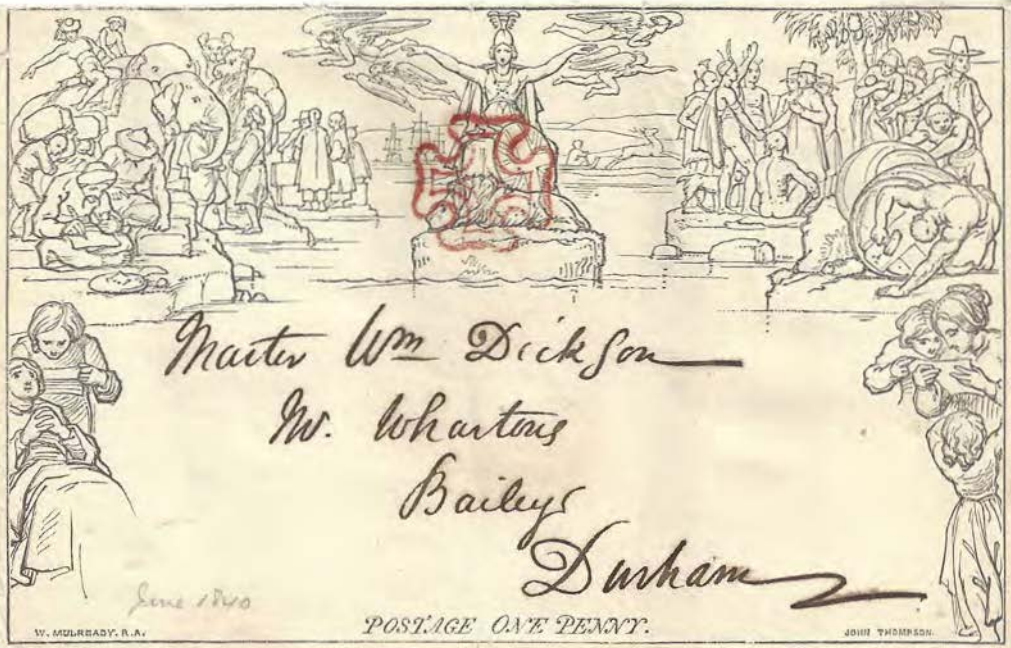 Master Wm Dickson
Mr. Whartons
Baileys
Durham
June 1840
W. MULREADY. R.A.
POSTAGE ONE PENNY.
JOHN THOMPSON.